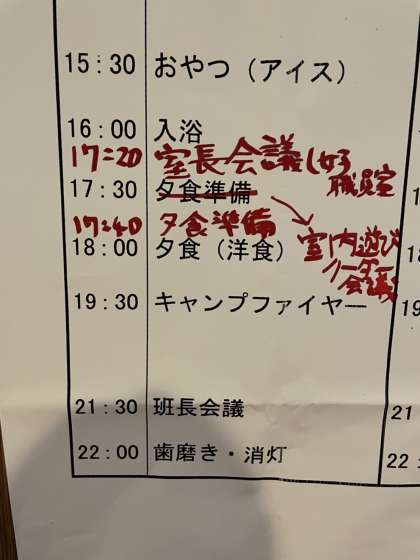 15:30 おやつ（アイス）
16:00 入浴
17:20 室長会議
職員室
17:30 夕食準備
17:40 夕食準備
室内遊び
リーダー
会議
18:00 夕食（洋食）
19:30 キャンプファイヤー
21:30 班長会議
22:00 歯磨き・消灯
21
22: